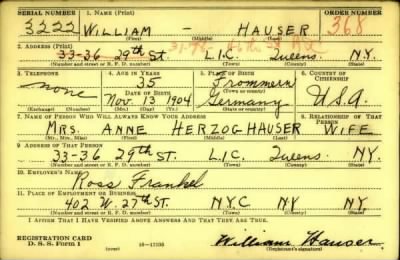 SERIAL NUMBER 1. NAME (Print) ORDER NUMBER
3222 WILLIAM - HAUSER 368
(First) (Middle) (Last)
2. ADDRESS (Print)
33-36 29th ST. L.I.C. Queens. N.Y.
(Number and street or R. F. D. number) (Town) (County) (State)
3. TELEPHONE 4. AGE IN YEARS 5. PLACE OF BIRTH 6. COUNTRY OF CITIZENSHIP
none 35 Frommern U.S.A.
DATE OF BIRTH (Town or county)
Nov. 13 1904 Germany
(Exchange) (Number) (Mo.) (Day) (Yr.) (State or country)
7. NAME OF PERSON WHO WILL ALWAYS KNOW YOUR ADDRESS 8. RELATIONSHIP OF THAT PERSON
MRS. ANNE HERZOG HAUSER WIFE
(Mr., Mrs., Miss) (First) (Middle) (Last)
9. ADDRESS OF THAT PERSON
33-36 29th ST. L.I.C. Queens. NY.
(Number and street or R. F. D. number) (Town) (County) (State)
10. EMPLOYER'S NAME
Ross Frankel
11. PLACE OF EMPLOYMENT OR BUSINESS
402 W. 27th ST. N.Y.C NY NY.
(Number and street or R. F. D. number) (Town) (County) (State)
I AFFIRM THAT I HAVE VERIFIED ABOVE ANSWERS AND THAT THEY ARE TRUE.
REGISTRATION CARD
D. S. S. Form 1 16-17105 William Hauser
(Registrant's signature)